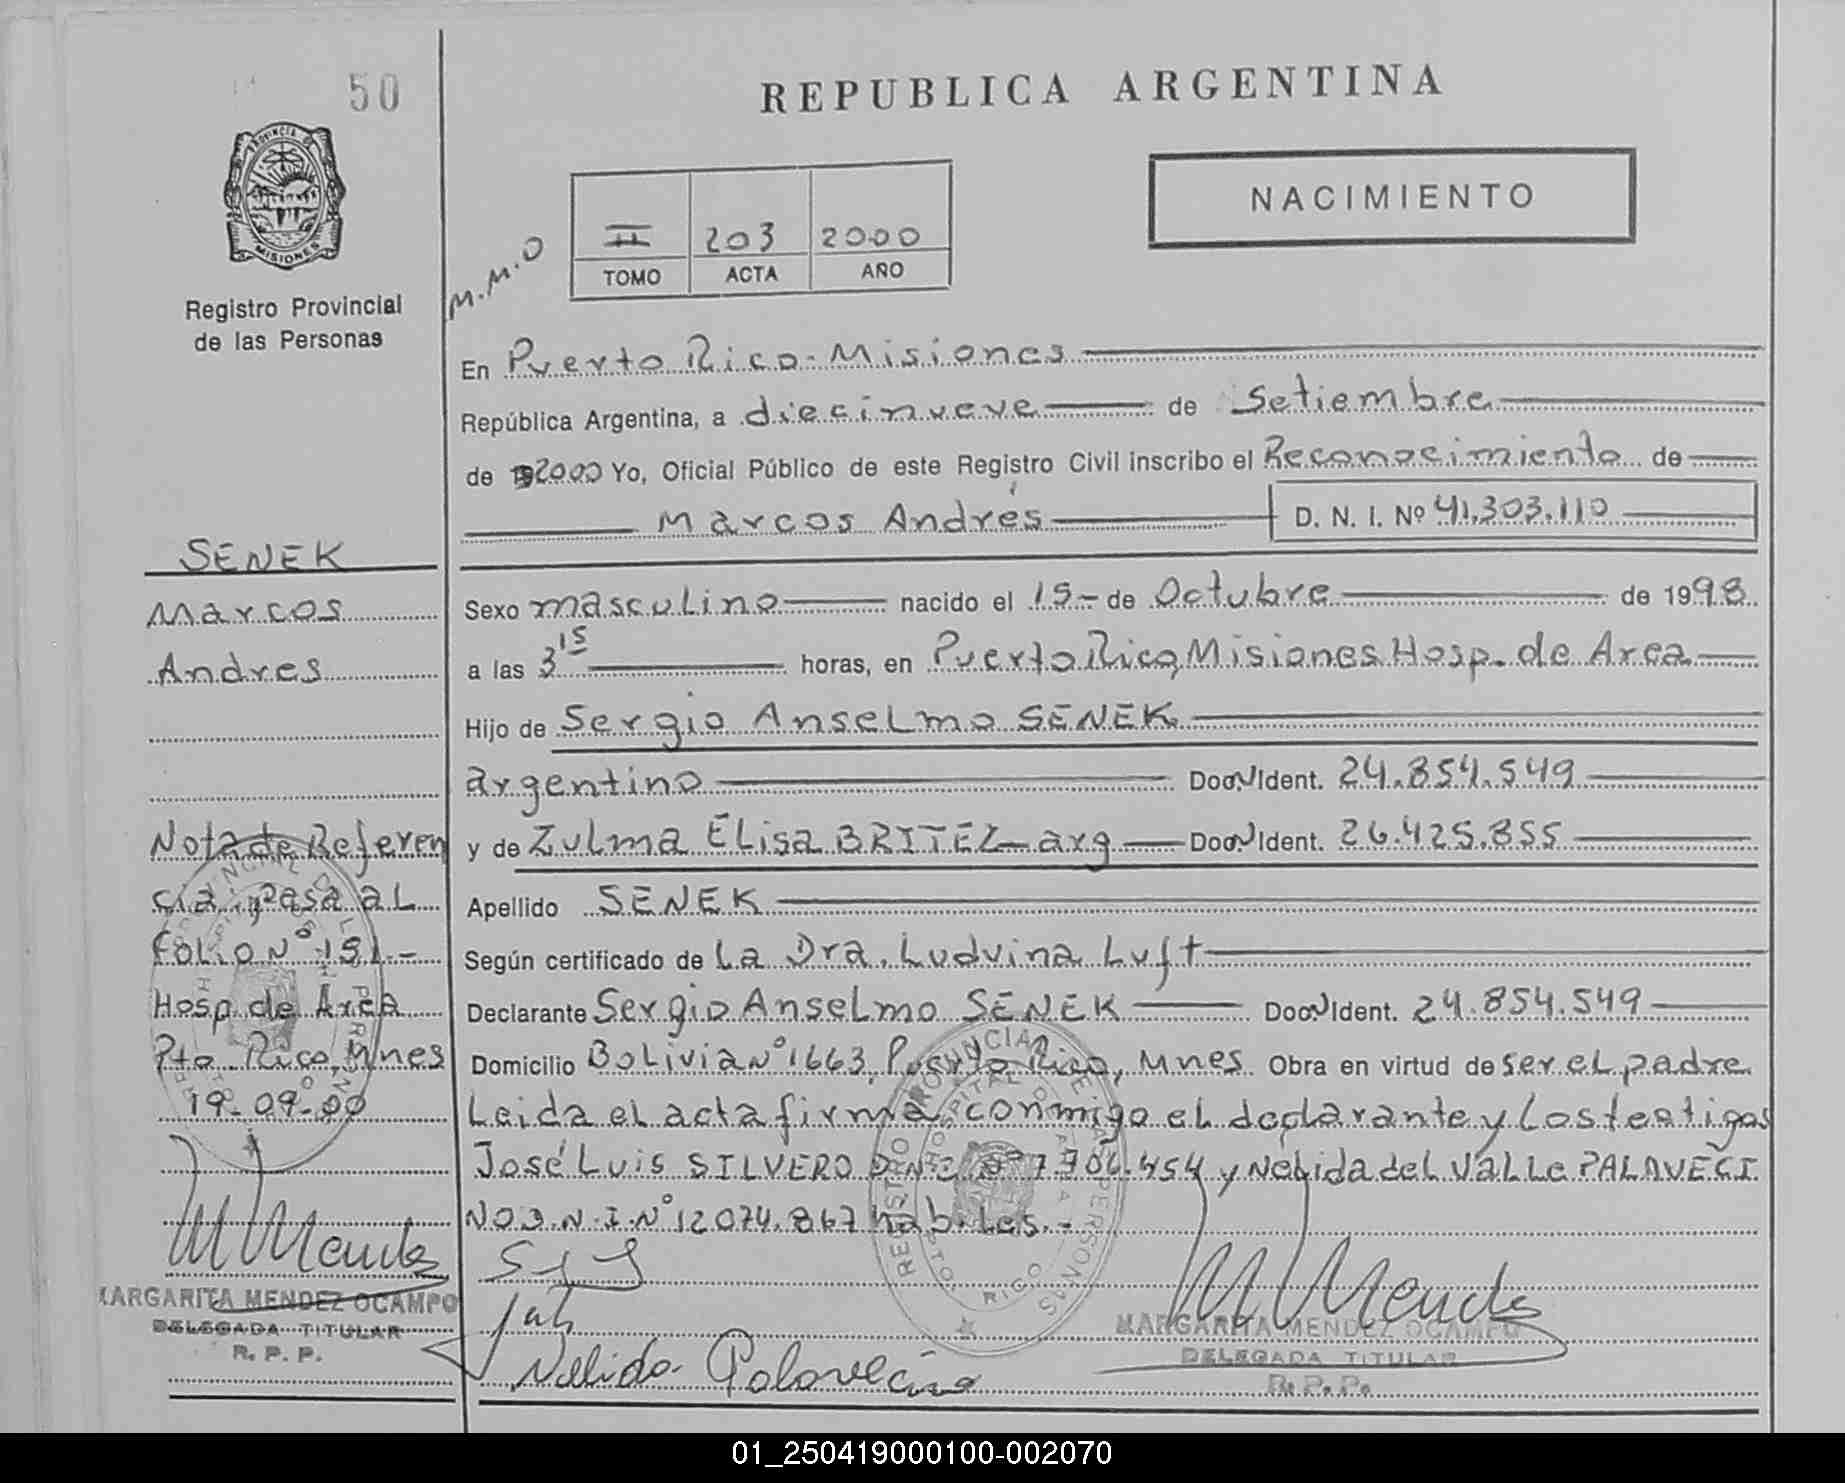 50
REPUBLICA ARGENTINA
PROVINCIA DE
MISIONES
NACIMIENTO
M.M.O
II 203 2000
TOMO ACTA AÑO
Registro Provincial
de las Personas
En Puerto Rico - Misiones
República Argentina, a diecinueve de Setiembre
de 2000 Yo, Oficial Público de este Registro Civil inscribo el Reconocimiento de
Marcos Andrés D. N. I. Nº 41.303.110
SENEK
Marcos
Andres
Sexo masculino nacido el 15 - de Octubre de 1998
a las 3 15 horas, en Puerto Rico, Misiones Hosp. de Area
Hijo de Sergio Anselmo SENEK
argentino Doc. Ident. 24.854.549
y de Zulma Elisa BRITEZ - arg Doc. Ident. 26.425.855
Apellido SENEK
Según certificado de La Dra. Ludvina Luft
Declarante Sergio Anselmo SENEK Doc. Ident. 24.854.549
Domicilio Bolivia Nº 1663, Puerto Rico, Mnes Obra en virtud de ser el padre
Leida el acta firma conmigo el declarante y Los testigos
José Luis SILVERO y Nelida del Valle PALAVECI
NO D.N.I. Nº 12074.867 hábiles.-
Nota de Referen
cia, pasa al
Folio Nº 191.-
Hosp. de Area
Pto. Rico, Mnes
19-09-00
M Mendez
MARGARITA MENDEZ OCAMPO
DELEGADA TITULAR
R. P. P.
Nelida Palavecino
M Mendez
MARGARITA MENDEZ OCAMPO
DELEGADA TITULAR
R. P. P.
01_250419000100-002070